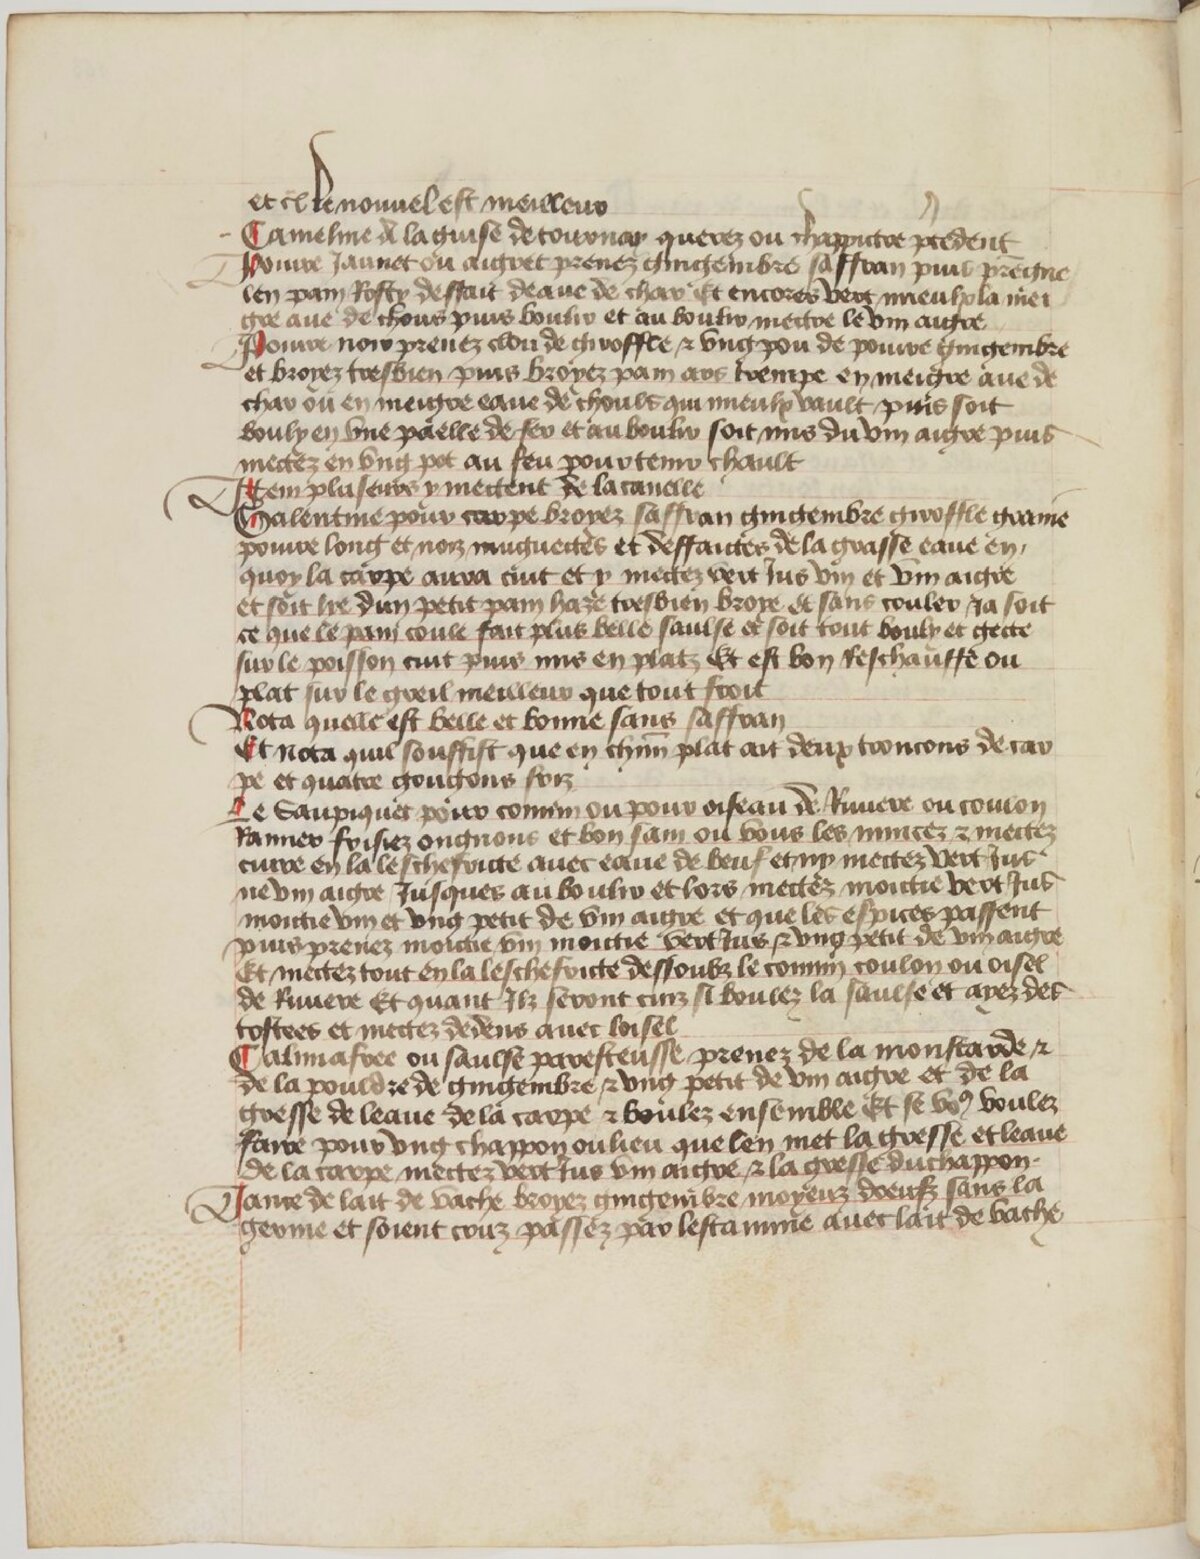 et cil le nouuel est meilleur
Cameline A la guise de tournay querez ou chappitre predent
Poiure Jaunet ou aigret prenez gingembre saffran puis preigne
len pain Rosty deffait deaue de char Et encores vert mieulx la mei
gre aue de chous puis boulir et au boulir mectre le vin aigre
Poiure noir prenez clou de giroffle ⁊ vng pou de poiure gingembre
et broyez tresbien puis broyez pain ars trempe en meigre aue de
char ou en meigre eaue de chouls qui mieulx vault puis soit
bouly en vne paelle de fer et au boulir soit mis du vin aigre puis
mectez en vng pot au feu pour tenir chault
Item pluseurs y mectent de la canelle
Galentine pour carpe broyez saffran gingembre giroffle graine
poiure long et noiz muguectes et deffaictes de la grasse eaue en
quoy la carpe aura cuit et y mectez vert Jus vin et vin aigre
et soit lie dun petit pain hale tresbien broye et sans couler Ja soit
ce que le pain coule fait plus belle saulse et soit tout bouly et gecte
sur le poisson cuit puis mis en platz Et est bon Reschauffe ou
plat sur le greil meilleur que tout froit
Nota quelle est belle et bonne sans saffran
Et nota quil souffist que en chũn plat ait deux troncons de car
pe et quatre gougons friz
Le Saupiquet pour connin ou pour oiseau de Riuiere ou coulon
Ramier frisiez ongnons et bon sain ou vous les mincez ⁊ mectez
cuire en la leschefricte auec eaue de beuf et ny mectez vert Jus
ne vin aigre Jusques au boulir et lors mectez moitie vert Jus
moitie vin et vng petit de vin aigre et que les espices passent
puis prenez moitie vin moitie vert Jus ⁊ vng petit de vin aigre
Et mectez tout en la leschefricte dessoubz le connin coulon ou oisel
de Riuiere Et quant Ilz seront cuiz si boulez la saulse et ayez des
tostees et mectez dedens auec loisel
Calimafree ou saulse paresseusse prenez de la moustarde ⁊
de la pouldre de gingembre ⁊ vng petit de vin aigre et de la
gresse de leaue de la carpe ⁊ boulez ensemble Et se voꝰ voulez
faire pour vng chappon ou lieu que len met la gresse et leaue
de la carpe mectez vert Jus vin aigre ⁊ la gresse du chappon
Jance de lait de vache broyez gingembre moyeuz doeufz sans la
germe et soient cruz passez par lestamine auec lait de vache